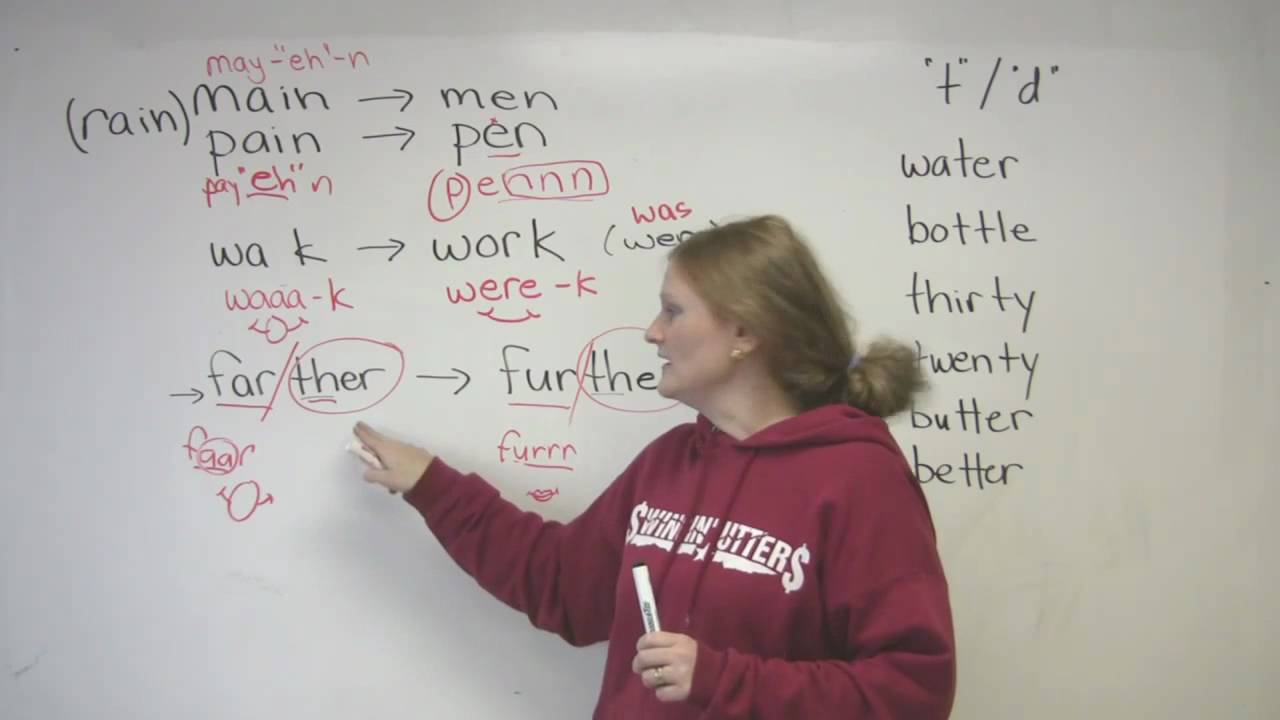 may-"eh"-n
(rain) main → men
pain → pen
pay "eh" n pennn
was
wa k → work
waaa-k were-k
→ far/ther → fur/the
faar furrr
"t"/"d"
water
bottle
thirty
twenty
butter
better
$WINGIN' UTTER$